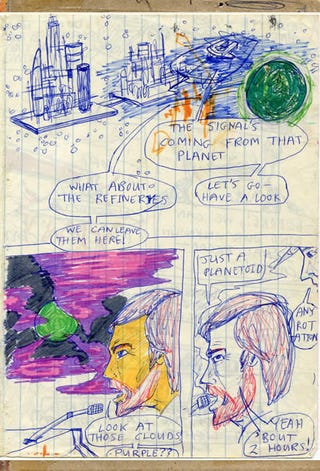 THE SIGNAL'S
COMING FROM THAT
PLANET
WHAT ABOUT
THE REFINERIES
LET'S GO -
HAVE A LOOK
WE CAN LEAVE
THEM HERE!
LOOK AT
THOSE CLOUDS
PURPLE??
JUST A
PLANETOID!
ANY
ROT
ATION
YEAH
'BOUT
2 HOURS!